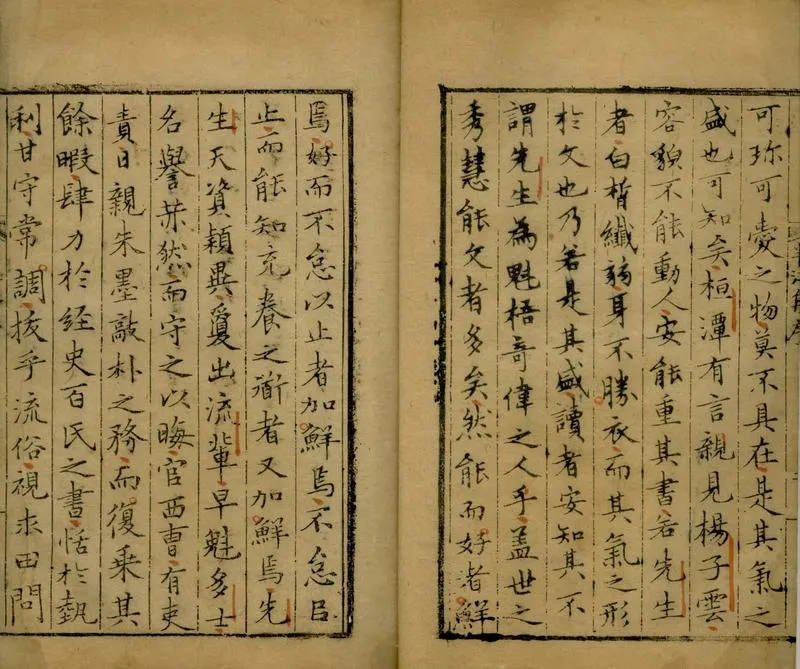 可珎可愛之物莫不具在是其氣之
盛也可知矣桓潭有言親見楊子雲
容貌不能動人安能重其書若先生
者白皙纎弱身不勝衣而其氣之形
於文也乃若是其盛讀者安知其不
謂先生為魁梧奇偉之人乎盖世之
秀慧能文者多矣然能而好者鮮
焉好而不怠以止者加鮮焉不怠以
止而能知充養之術者又加鮮焉先
生天資穎異夐出流輩早魁多士
名譽赫然而守之以晦官西曹有吏
責日親朱墨敲朴之務而復乗其
餘暇肆力於経史百氏之書恬於埶
利甘守常調拔乎流俗視求田問